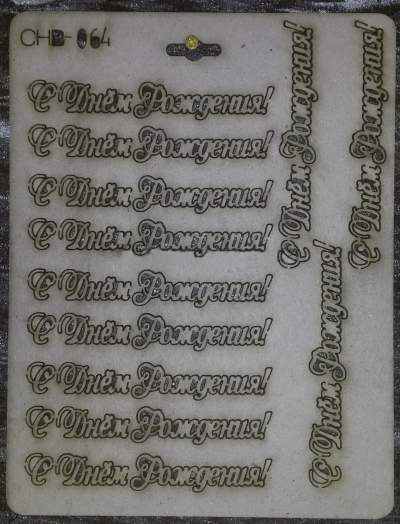 CHB-064
С Днём Рождения!
С Днём Рождения!
С Днём Рождения!
С Днём Рождения!
С Днём Рождения!
С Днём Рождения!
С Днём Рождения!
С Днём Рождения!
С Днём Рождения!
С Днём Рождения!
С Днём Рождения!
С Днём Рождения!